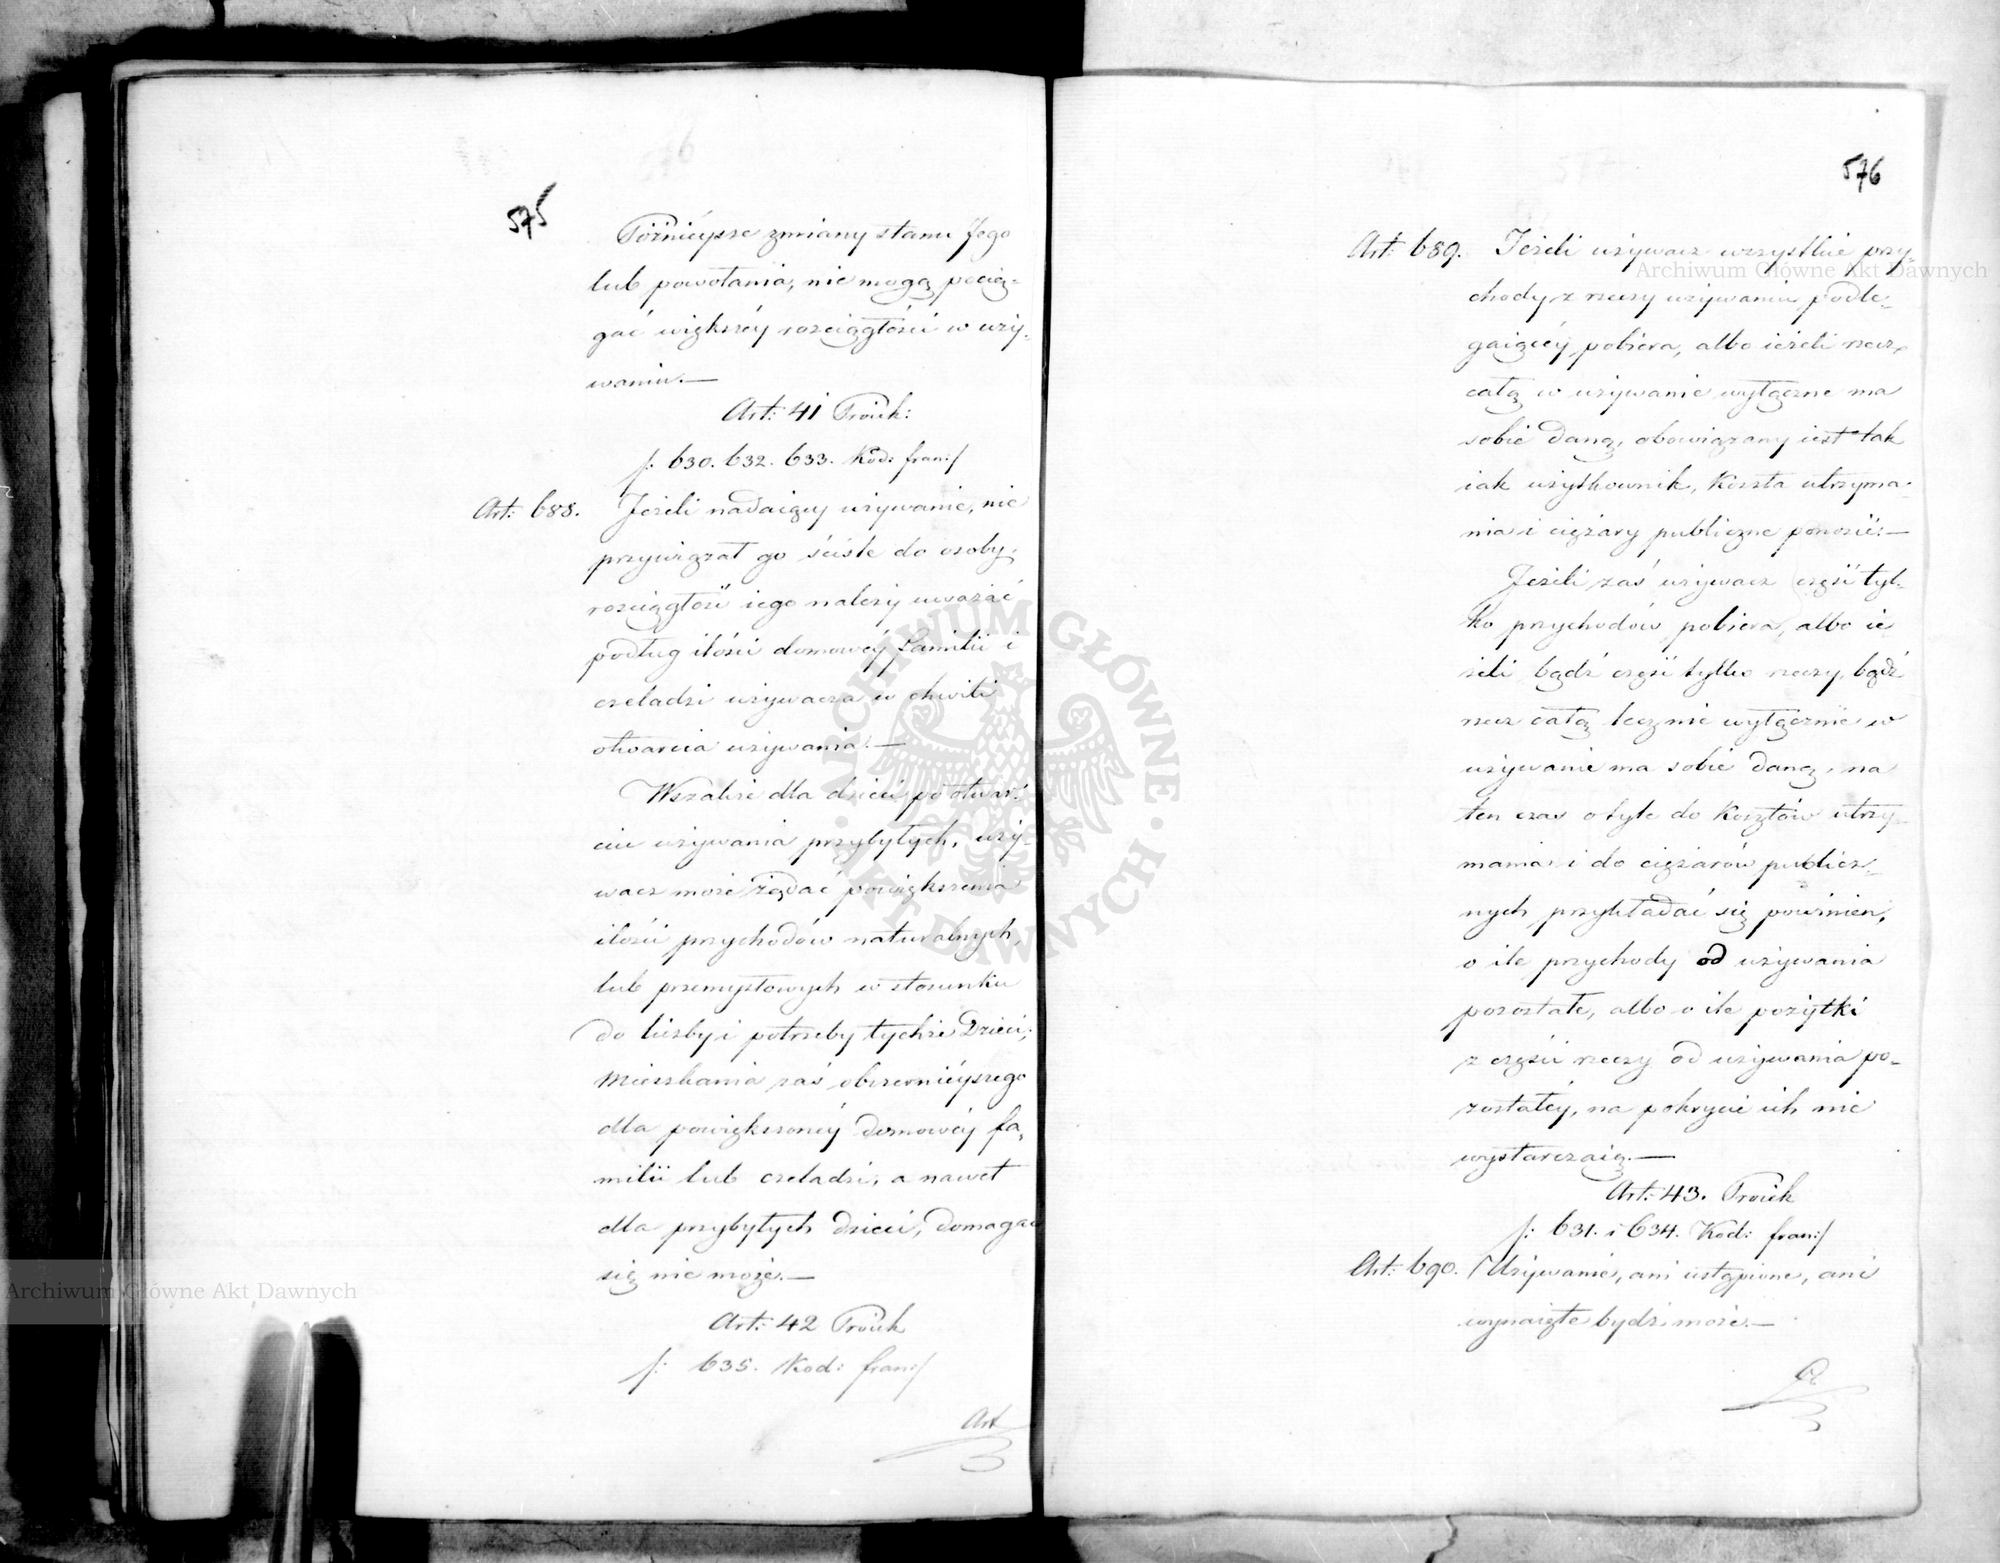 575
Późnieysze zmiany stanu Jego
lub powołania, nie mogą pocią-
gać większéy rosciągłości w uży-
waniu.—
Art: 41 Proiek:
/: 630. 632. 633. Kod: fran:/
Art: 688. Jeżeli nadaiący używanie, nie
przywiązał go ściśle do osoby,
rosciągłość iego należy uważać
podług ilości domowéy familii i
czeladzi używacza w chwili
otwarcia używania.—
Wszakże dla dzieci po otwar-
ciu używania przybyłych, uży-
wacz może żądać powiększenia
ilości przychodów naturalnych,
lub przemysłowych w stosunku
do liczby i potrzeby tychże Dzieci;
Mieszkania zaś obszernieyszego
dla powiększonéy domowéy fa-
milii lub czeladzi, a nawet
dla przybyłych dzieci, domagać
się nie może.—
Art: 42 Proiek
/: 635. Kod: fran:/
Art
576
Art: 689. Jeżeli używacz wszystkie przy-
chody z rzeczy używaniu podle-
gaiącéy pobiera, albo ieżeli rzecz
całą w używanie wyłączne ma
sobie daną, obowiązany iest tak
iak użytkownik, koszta utrzyma-
nia i ciężary publiczne ponosić.—
Jeżeli zaś używacz część tyl-
ko przychodów pobiera, albo ie
żeli bądź część tylko rzeczy, bądź
rzecz całą lecz nie wyłącznie w
używanie ma sobie daną, na
ten czas o tyle do kosztów utrzy-
mania i do ciężarów publicz-
nych przykładać się powinien,
o ile przychody od używania
pozostałe, albo o ile pożytki
z części rzeczy od używania po-
zostałéy, na pokrycie ich nie
wystarczaią.—
Art: 43. Proiek
/: 631. i 634. Kod: fran:/
Art: 690. Używanie, ani ustąpione, ani
wynaięte bydź może.—
Archiwum Główne Akt Dawnych
Archiwum Główne Akt Dawnych
ARCHIWUM GŁÓWNE · AKT DAWNYCH ·